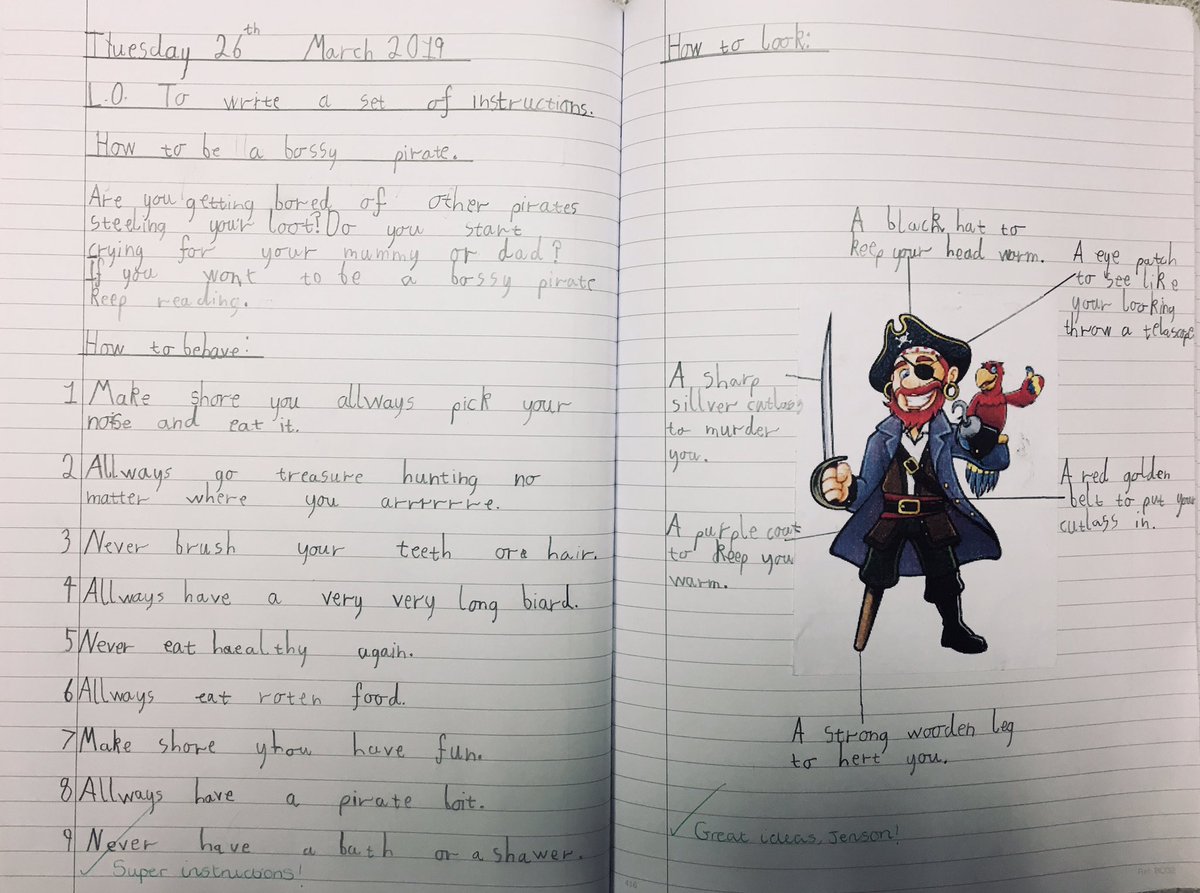 Tuesday 26th March 2019
L.O. To write a set of instructions.
How to be a bossy pirate.
Are you getting bored of other pirates
steeling your loot? Do you start
crying for your mummy or dad?
If you wont to be a bossy pirate
keep reading.
How to behave:
1 Make shore you allways pick your
noise and eat it.
2 Allways go treasure hunting no
matter where you arrrrrre.
3 Never brush your teeth ore hair.
4 Allways have a very very long biard.
5 Never eat haealthy again.
6 Allways eat roten food.
7 Make shore yhou have fun.
8 Allways have a pirate boit.
9 Never have a bath or a shawer.
Super instructions!
How to look:
A black hat to
keep your head worm.
A eye patch
to see like
your looking
throw a telascope
A sharp
sillver cutlass
to murder
you.
A red golden
belt to put your
cutlass in.
A purple coat
to keep you
warm.
A strong wooden leg
to hert you.
Great ideas, Jenson!
416